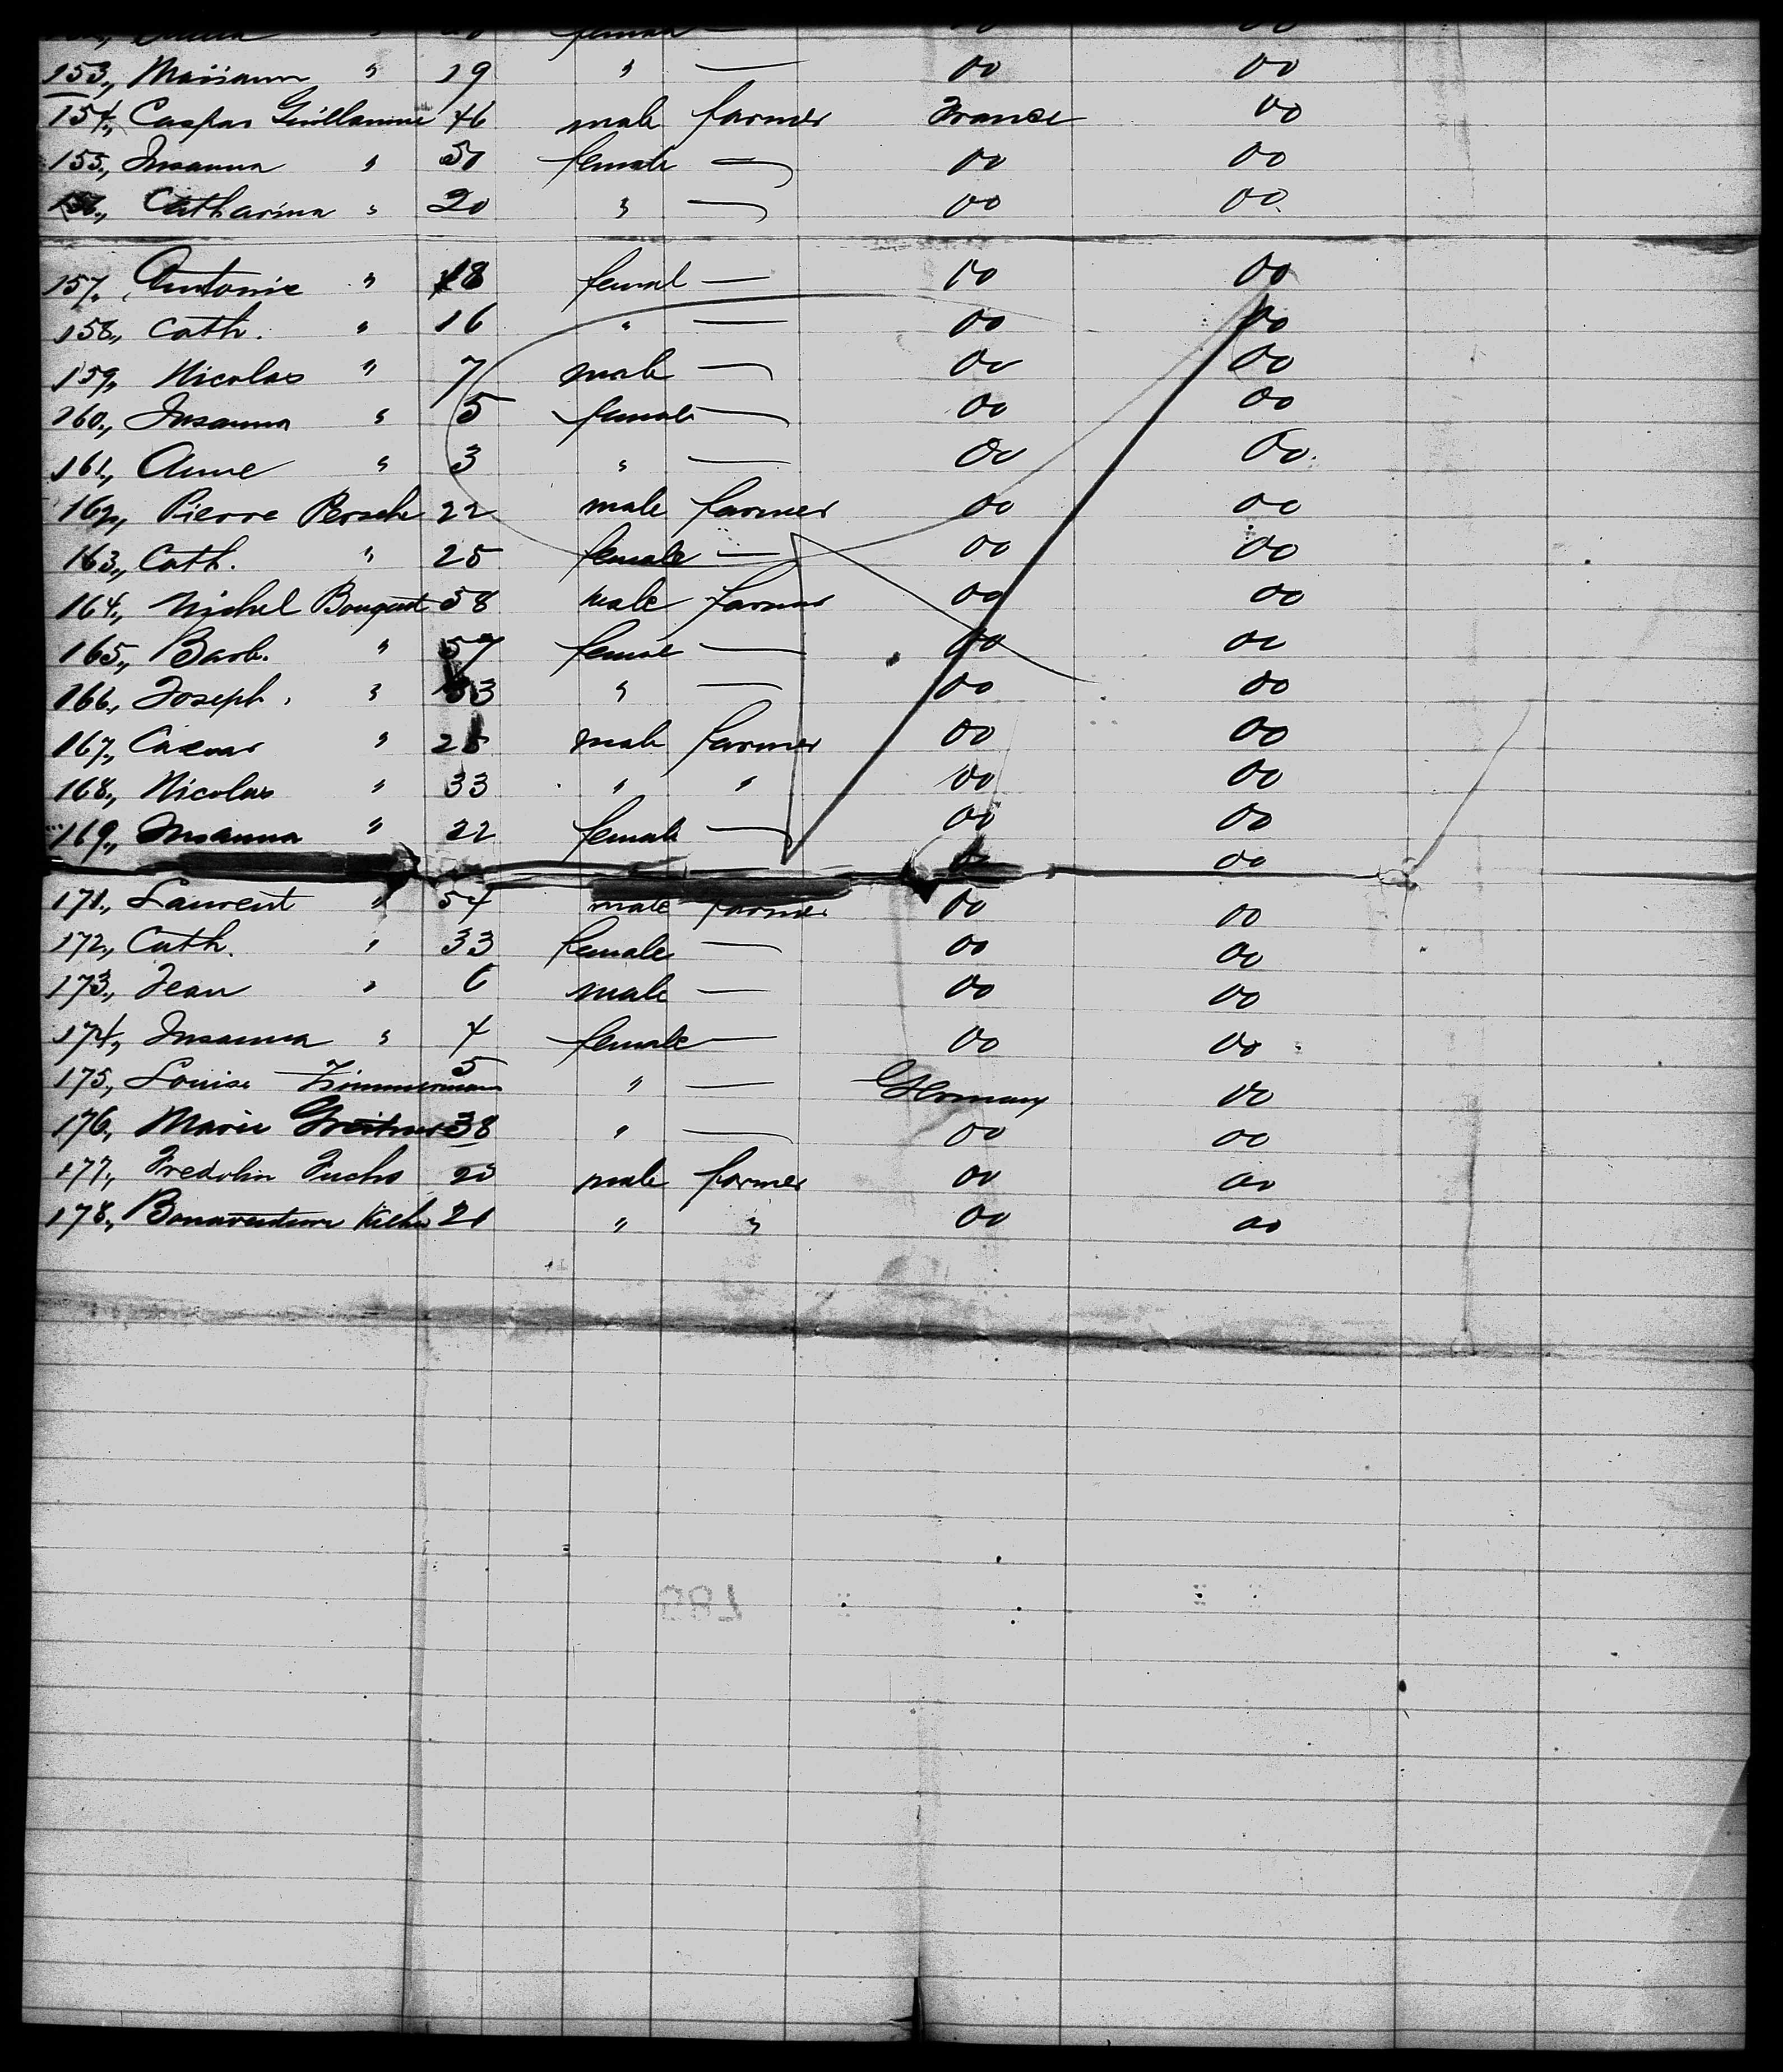 female —
153., Mariann " 19 " — do do
154., Caspar Guillaume 46 male farmer France do
155., Susanna " 51 female — do do
156., Catharina " 20 " — do do
157., Antonie " 18 femal — do do
158., Cath. " 16 " — do do
159., Nicolas " 7 male — do do
160., Susanna " 5 female — do do
161., Anne " 3 " — do do
162., Pierre Persche 22 male farmer do do
163., Cath. " 25 female — do do
164., Michel Bouquet 58 male farmer do do
165., Barb. " 57 female — do do
166., Joseph. " 33 " — do do
167., " 25 male farmer do do
168., Nicolas " 33 " " do do
169., Susanna " 22 female — do do
do do
171., Laurent " 54 male farmer do do
172., Cath. " 33 female — do do
173., Jean " 6 male — do do
174., Susanna " 4 female — do do
175., Louise Zimmermann 5 " — Germany do
176., Marie 38 " — do do
177., Fredolin Fuchs male farmer do do
178., Bonaventura 21 " " do do
587